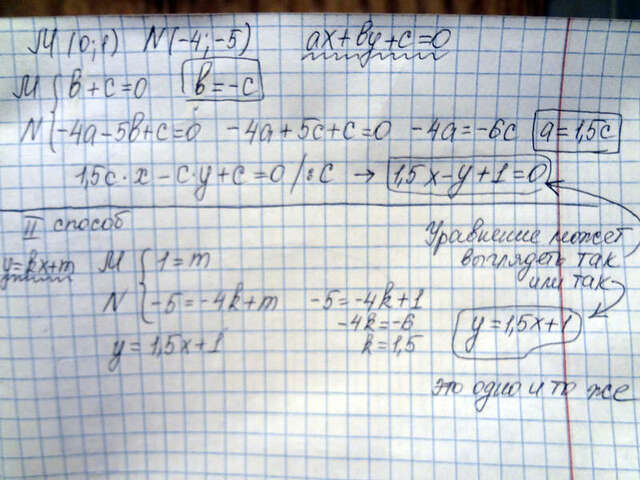 M (0;1) N(-4;-5) ax+by+c=0
M { b+c=0 b=-c
N { -4a-5b+c=0 -4a+5c+c=0 -4a=-6c a=1,5c
1,5c·x-c·y+c=0 /:c → 1,5x-y+1=0
II способ
Уравнение может
выглядеть так
или так
y=kx+m M { 1=m
N { -5=-4k+m -5=-4k+1
-4k=-6
y=1,5x+1 k=1,5
y=1,5x+1
это одно и то же